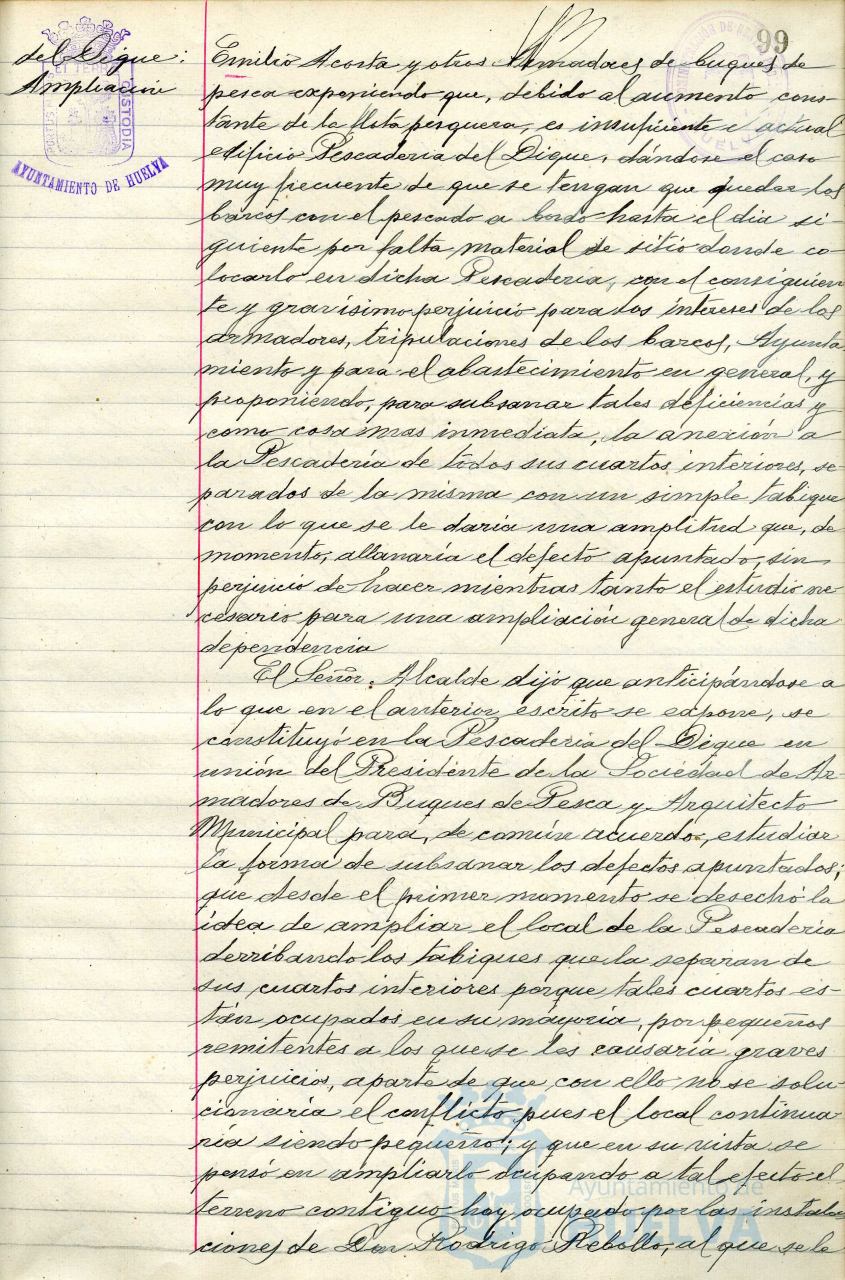 99
del Dique:
Ampliación
PORTUS MARIS ET TERRÆ CUSTODIA
AYUNTAMIENTO DE HUELVA
Emilio Acosta y otros Armadores de buques de
pesca exponiendo que, debido al aumento cons-
tante de la flota pesquera, es insuficiente el actual
edificio Pescaderia del Dique, dándose el caso
muy frecuente de que se tengan que quedar los
barcos con el pescado a bordo hasta el dia si-
guiente por falta material de sitio donde co-
locarlo en dicha Pescaderia, con el consiguien-
te y gravísimo perjuicio para los intereses de los
armadores, tripulaciones de los barcos, Ayunta-
miento y para el abastecimiento en general, y
proponiendo, para subsanar tales deficiencias y
como cosa mas inmediata, la anexión a
la Pescadería de todos sus cuartos interiores, se-
parados de la misma con un simple tabique
con lo que se le daria una amplitud que, de
momento, allanaría el defecto apuntado, sin
perjuicio de hacer mientras tanto el estudio ne-
cesario para una ampliación general de dicha
dependencia
El Señor Alcalde dijo que anticipándose a
lo que en el anterior escrito se expone, se
constituyó en la Pescaderia del Dique en
unión del Presidente de la Sociedad de Ar-
madores de Buques de Pesca y Arquitecto
Municipal para, de común acuerdo, estudiar
la forma de subsanar los defectos apuntados;
que desde el primer momento se desechó la
idea de ampliar el local de la Pescaderia
derribando los tabiques que la separan de
sus cuartos interiores porque tales cuartos es-
tán ocupados en su mayoría, por pequeños
remitentes a los que se les causaría graves
perjuicios, aparte de que con ello no se solu-
cionaria el conflicto pues el local continua-
ría siendo pequeño; y que en su vista se
pensó en ampliarlo ocupando a tal efecto el
terreno contiguo hoy ocupado por las instala-
ciones de Don Rodrigo Rebollo, al que se le
Ayuntamiento de
HUELVA